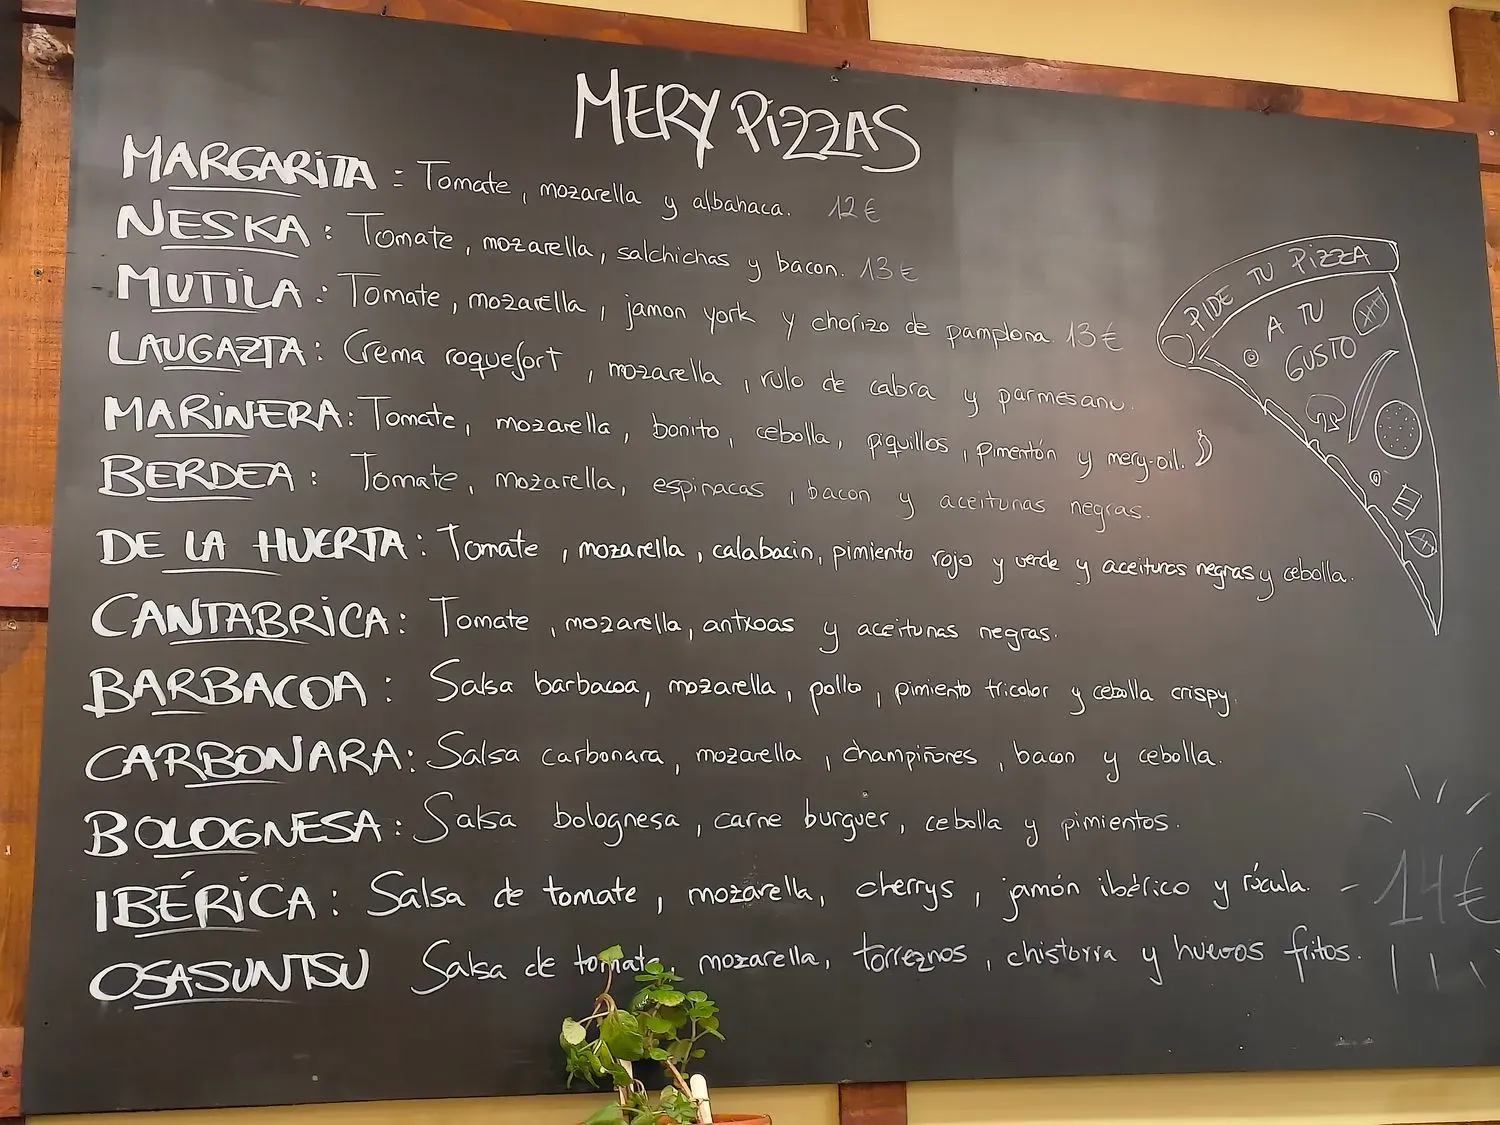 MERY PIZZAS
MARGARITTA : Tomate, mozarella y albahaca. 12€
NESKA : Tomate, mozarella, salchichas y bacon. 13€
MUTILA : Tomate, mozarella, jamon york y chorizo de pamplona. 13€
LAUGAZTA : Crema roquefort, mozarella, rulo de cabra y parmesano.
MARINERA : Tomate, mozarella, bonito, cebolla, piquillos, pimentón y mery-oil.
BERDEA : Tomate, mozarella, espinacas, bacon y aceitunas negras.
DE LA HUERTA : Tomate, mozarella, calabacin, pimiento rojo y verde y aceitunas negras y cebolla.
CANTABRICA : Tomate, mozarella, antxoas y aceitunas negras.
BARBACOA : Salsa barbacoa, mozarella, pollo, pimiento tricolor y cebolla crispy.
CARBONARA : Salsa carbonara, mozarella, champiñones, bacon y cebolla.
BOLOGNESA : Salsa bolognesa, carne burguer, cebolla y pimientos.
IBÉRICA : Salsa de tomate, mozarella, cherrys, jamón ibérico y rúcula. - 14€
OSASUNTSU Salsa de tomate, mozarella, torreznos, chistorra y huevos fritos.
PIDE TU PIZZA
A TU
GUSTO